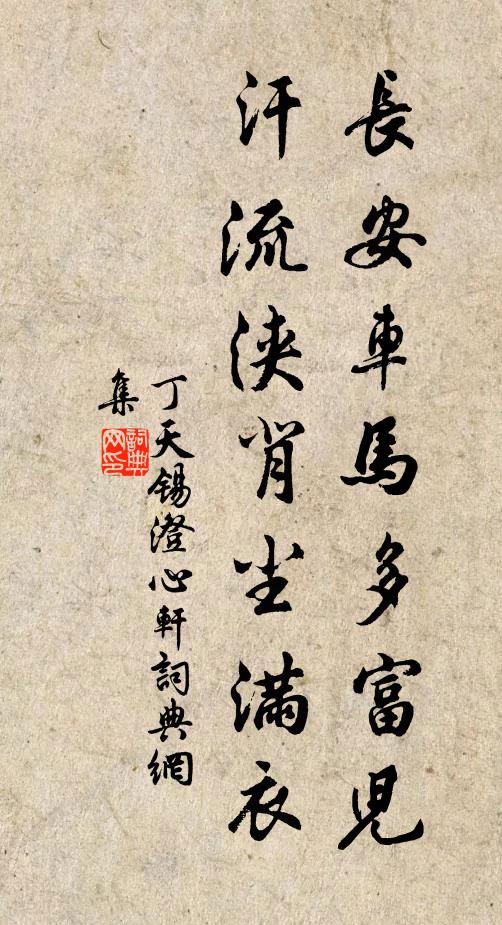 長安車馬多富兒
汗流浹背塵滿衣
丁天錫澄心軒詞典網
集
詞典網印